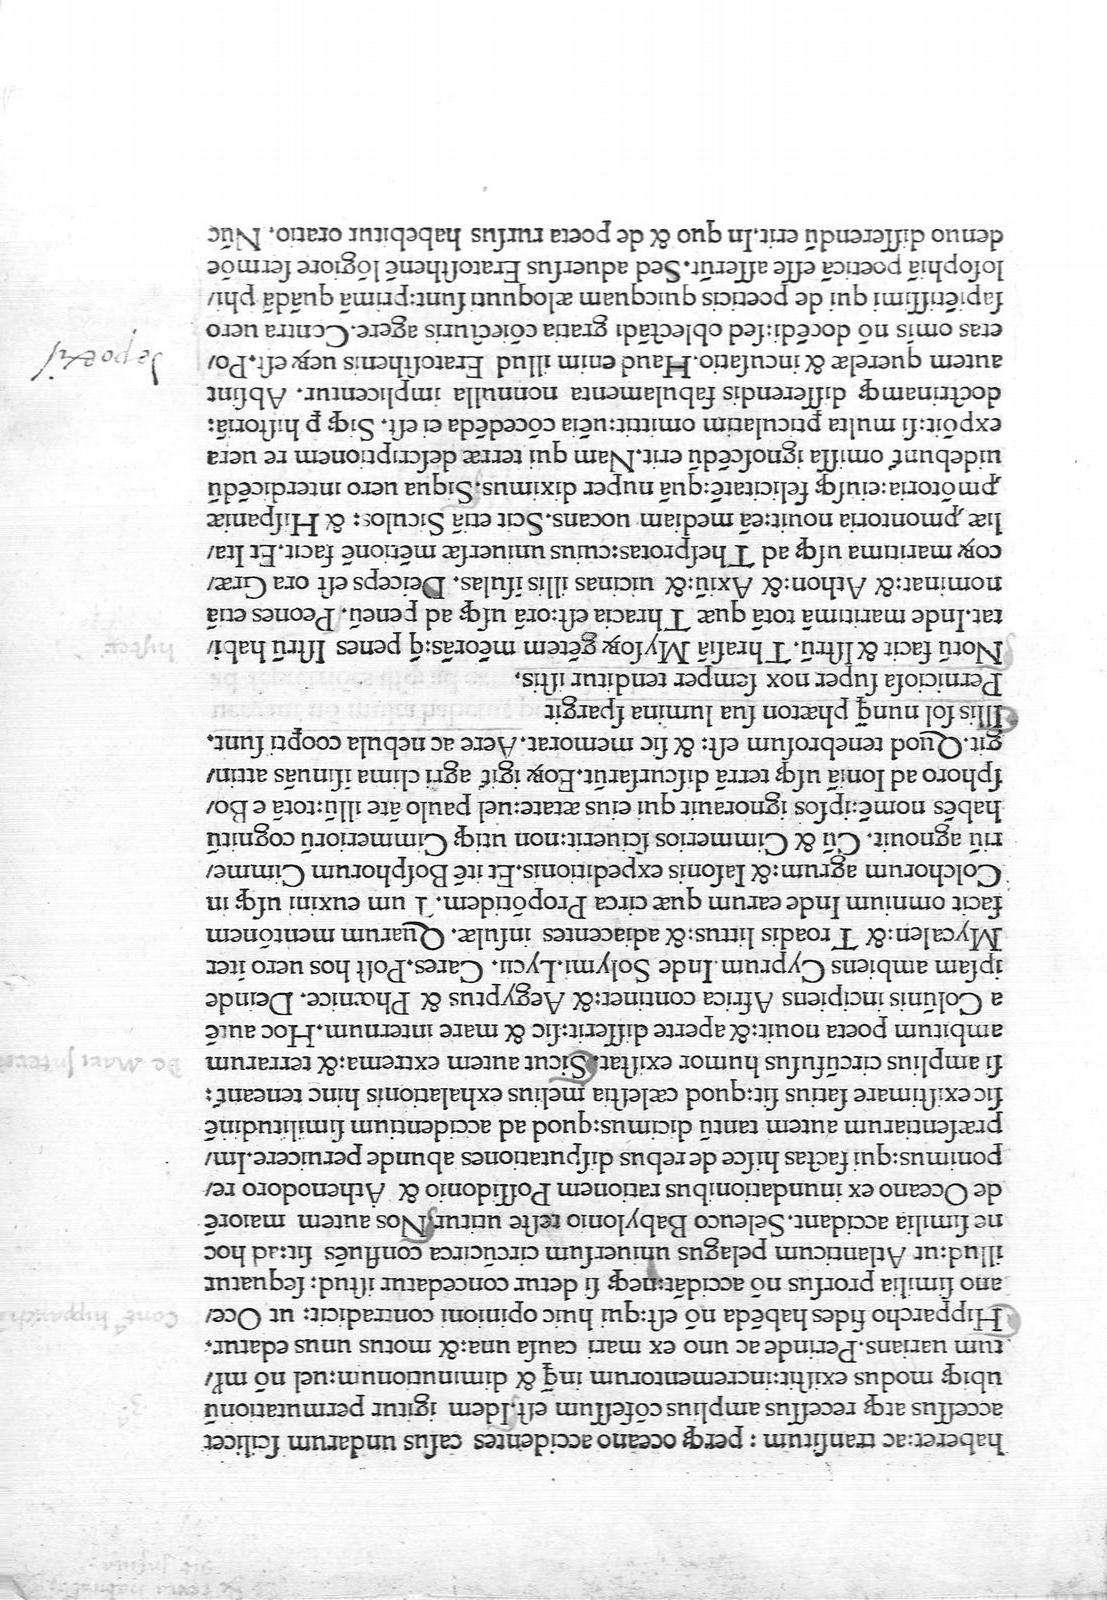 haberet:ac transitum : perq̃ oceano accidentes casus undarum scilicet
accessus atq; recessus amplius cõsessum est. Idem igitur permutationũ
ubiq; modus existit:incrementorum inq̃ & diminutionum:uel nõ ml̃/
tum uarians. Perinde ac uno ex mari causa una:& motus unus edatur.
Hipparcho fides habẽda nõ est:qui huic opinioni contradicit: ut Oce/
ano similia prorsus nõ accidãt:neq; si detur concedatur istud: sequatur
illud:ut Atlanticum pelagus uniuersum circũcirca confluẽs sit:ad hoc
ne similia accidant. Seleuco Babylonio teste utitur. Nos autem maiorẽ
de Oceano ex inundationibus rationem Possidonio & Athenodoro re/
ponimus:qui factas hisce de rebus disputationes abunde peruicere. Im/
præsentiarum autem tantũ dicimus:quod ad accidentium similitudinẽ
sic existimare satius sit:quod cælestia melius exhalationis hinc teneant̃:
si amplius circũfusus humor existat. Sicut autem extrema:& terrarum
ambitum poeta nouit:& aperte disserit:sic & mare internum. Hoc autẽ
a Colũnis incipiens Africa continet:& Aegyptus & Phœnice. Deinde
ipsam ambiens Cyprum. Inde Solymi. Lycii. Cares. Post hos uero iter
Mycalen:& Troadis littus:& adiacentes insulæ. Quarum mentõnem
facit omnium Inde earum quæ circa Propõtidem. Tum euxini usq; in
Colchorum agrum:& Iasonis expeditionis. Et itẽ Bosphorum Cimme/
riũ agnouit. Cũ & Cimmerios sciuerit:non utiq; Cimmeriorũ cognitũ
habẽs nomẽ:ipsos ignorauit qui eius ætate:uel paulo ãte illũ:totã e Bo/
sphoro ad Ioniã usq; terrã discursarũt. Eoꝝ igit̃ agri clima isinuãs attin/
git. Quod tenebrosum est: & sic memorat. Aere ac nebula coopti sunt.
Illis sol nunq̃ phæton sua lumina spargit
Perniciosa super nox semper tenditur istis.
Notũ facit & Istrũ. Thrasiã Mysoꝝ gẽtem mẽorãs:q̃ penes Istrũ habi/
tat. Inde maritimã totã quæ Thracia est:orã usq; ad peneũ. Peones etiã
nominat:& Athon:& Axiũ:& uicinas illis isulas. Deiceps est ora Græ/
coꝝ maritima usq; ad Thesprotas:cuius uniuersæ mẽtionẽ facit. Et Ita/
liæ ꝓmontoria nouit:eã mediam uocans. Scit etiã Siculos: & Hispaniæ
ꝓmõtoria:eiusq; felicitatẽ:quã nuper diximus. Siqua uero interdicẽdũ
uidebunt̃ omissa ignoscẽdũ erit. Nam qui terræ descriptionem re uera
expõit:si multa ꝑticulatim omittit:uẽia cõcedẽda ei est. Siq; ꝑ historiã:
doctrinamq; disserendis fabulamenta nonnulla implicentur. Absint
autem querelæ & inculatio. Haud enim illud Eratosthenis ueꝝ est. Po/
etas omis nõ docẽdi:sed oblectãdi gratia cõiecturis agere. Contra uero
sapiẽtissimi qui de poeticis quicquam æloquuti sunt:primã quãdã phi/
losophiã poeticã esse asserũt. Sed aduersus Eratosthenẽ lõgiore sermõe
denuo disserendũ erit. In quo & de poeta rursus habebitur oratio. Nũc